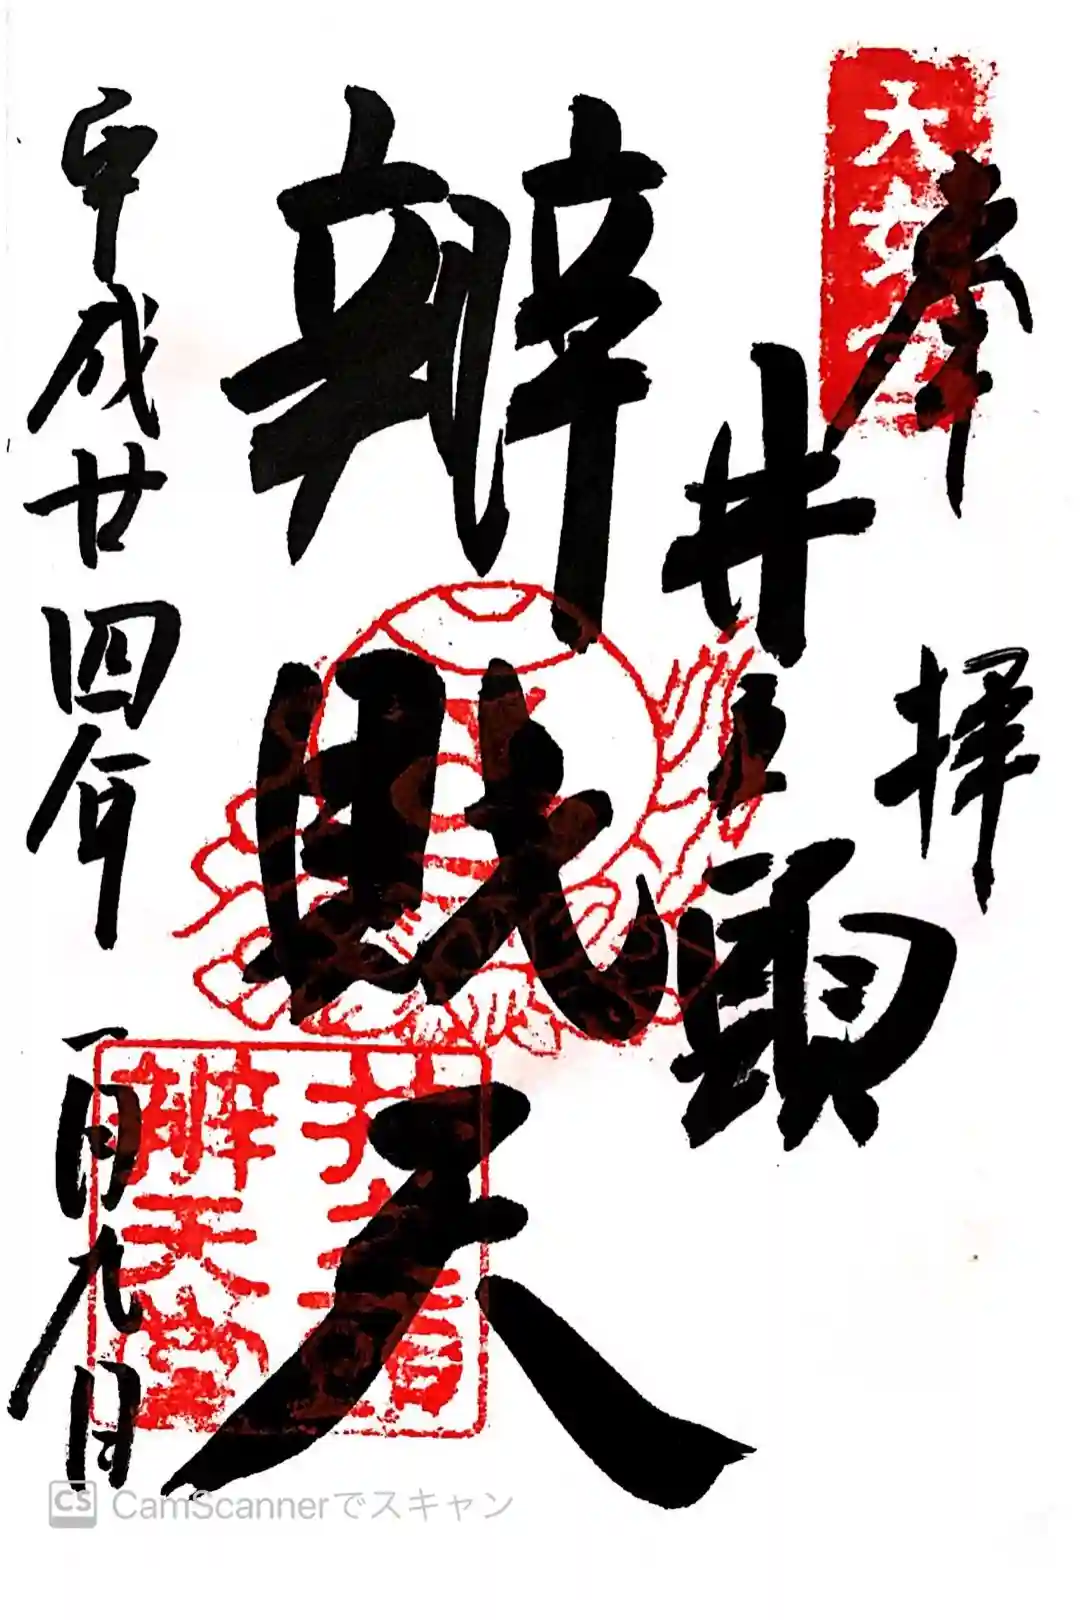 奉拝
井之頭
辨財天
平成廿四年一月九日
井之頭
辨天堂
CS CamScannerでスキャン